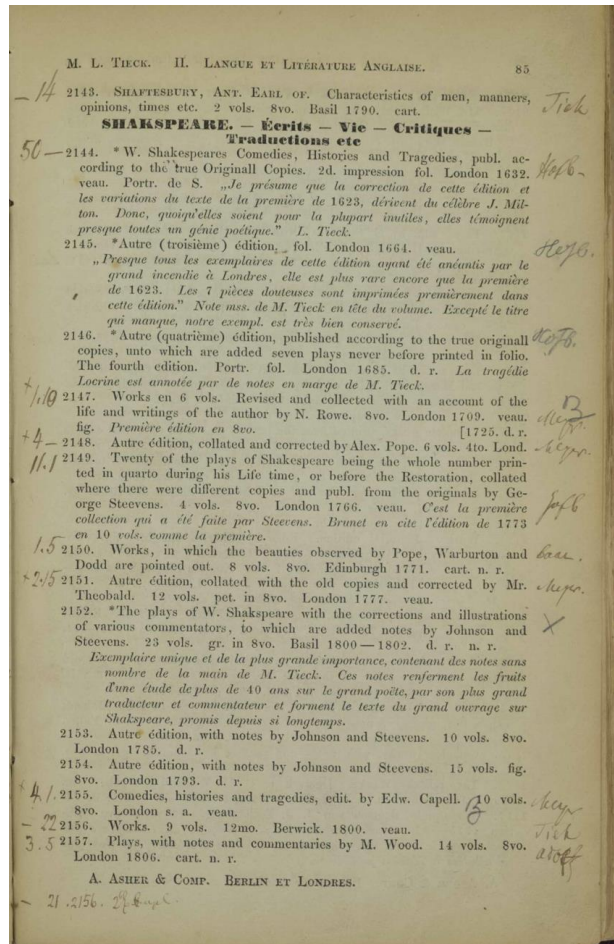 M. L. Tieck. II. Langue et Litérature Anglaise. 85
— 14
2143. Shaftesbury, Ant. Earl of. Characteristics of men, manners,
opinions, times etc. 2 vols. 8vo. Basil 1790. cart.
Tieck
SHAKSPEARE. — Écrits — Vie — Critiques —
Traductions etc
50 —
2144. *W. Shakespeares Comedies, Histories and Tragedies, publ. ac-
cording to the true Originall Copies. 2d. impression fol. London 1632.
veau. Portr. de S. „Je présume que la correction de cette édition et
les variations du texte de la première de 1623, dérivent du célèbre J. Mil-
ton. Donc, quoiqu'elles soient pour la plupart inutiles, elles témoignent
presque toutes un génie poétique." L. Tieck.
Hofb.
2145. *Autre (troisième) édition, fol. London 1664. veau.
„Presque tous les exemplaires de cette édition ayant été anéantis par le
grand incendie à Londres, elle est plus rare encore que la première
de 1623. Les 7 pièces douteuses sont imprimées premièrement dans
cette édition." Note mss. de M. Tieck en tête du volume. Excepté le titre
qui manque, notre exempl. est très bien conservé.
Hofb.
2146. *Autre (quatrième) édition, published according to the true originall
copies, unto which are added seven plays never before printed in folio.
The fourth edition. Portr. fol. London 1685. d. r. La tragédie
Locrine est annotée par de notes en marge de M. Tieck.
Hofb.
+ 1.10
2147. Works en 6 vols. Revised and collected with an account of the
life and writings of the author by N. Rowe. 8vo. London 1709. veau.
fig. Première édition en 8vo. [1725. d. r.
Meyr.
+ 4 —
2148. Autre édition, collated and corrected by Alex. Pope. 6 vols. 4to. Lond.
Meyr.
11.1
2149. Twenty of the plays of Shakespeare being the whole number prin-
ted in quarto during his Life time, or before the Restoration, collated
where there were different copies and publ. from the originals by Ge-
orge Steevens. 4 vols. 8vo. London 1766. veau. C'est la première
collection qui a été faite par Steevens. Brunet en cite l'édition de 1773
en 10 vols. comme la première.
Hofb
1.5
2150. Works, in which the beauties observed by Pope, Warburton and
Dodd are pointed out. 8 vols. 8vo. Edinburgh 1771. cart. n. r.
+ 2.15
2151. Autre édition, collated with the old copies and corrected by Mr.
Theobald. 12 vols. pet. in 8vo. London 1777. veau.
Meyr.
2152. *The plays of W. Shakespeare with the corrections and illustrations
of various commentators, to which are added notes by Johnson and
Steevens. 23 vols. gr. in 8vo. Basil 1800—1802. d. r. n. r.
Exemplaire unique et de la plus grande importance, contenant des notes sans
nombre de la main de M. Tieck. Ces notes renferment les fruits
d'une étude de plus de 40 ans sur le grand poëte, par son plus grand
traducteur et commentateur et forment le texte du grand ouvrage sur
Shakspeare, promis depuis si longtemps.
X
2153. Autre édition, with notes by Johnson and Steevens. 10 vols. 8vo.
London 1785. d. r.
2154. Autre édition, with notes by Johnson and Steevens. 15 vols. fig.
8vo. London 1793. d. r.
+ 4.1.
2155. Comedies, histories and tragedies, edit. by Edw. Capell. 10 vols.
8vo. London s. a. veau.
Meyr
— 22
2156. Works. 9 vols. 12mo. Berwick. 1800. veau.
Tieck
3.5
2157. Plays, with notes and commentaries by M. Wood. 14 vols. 8vo.
London 1806. cart. n. r.
A. Asher & Comp. Berlin et Londres.
— 21 . 2156.